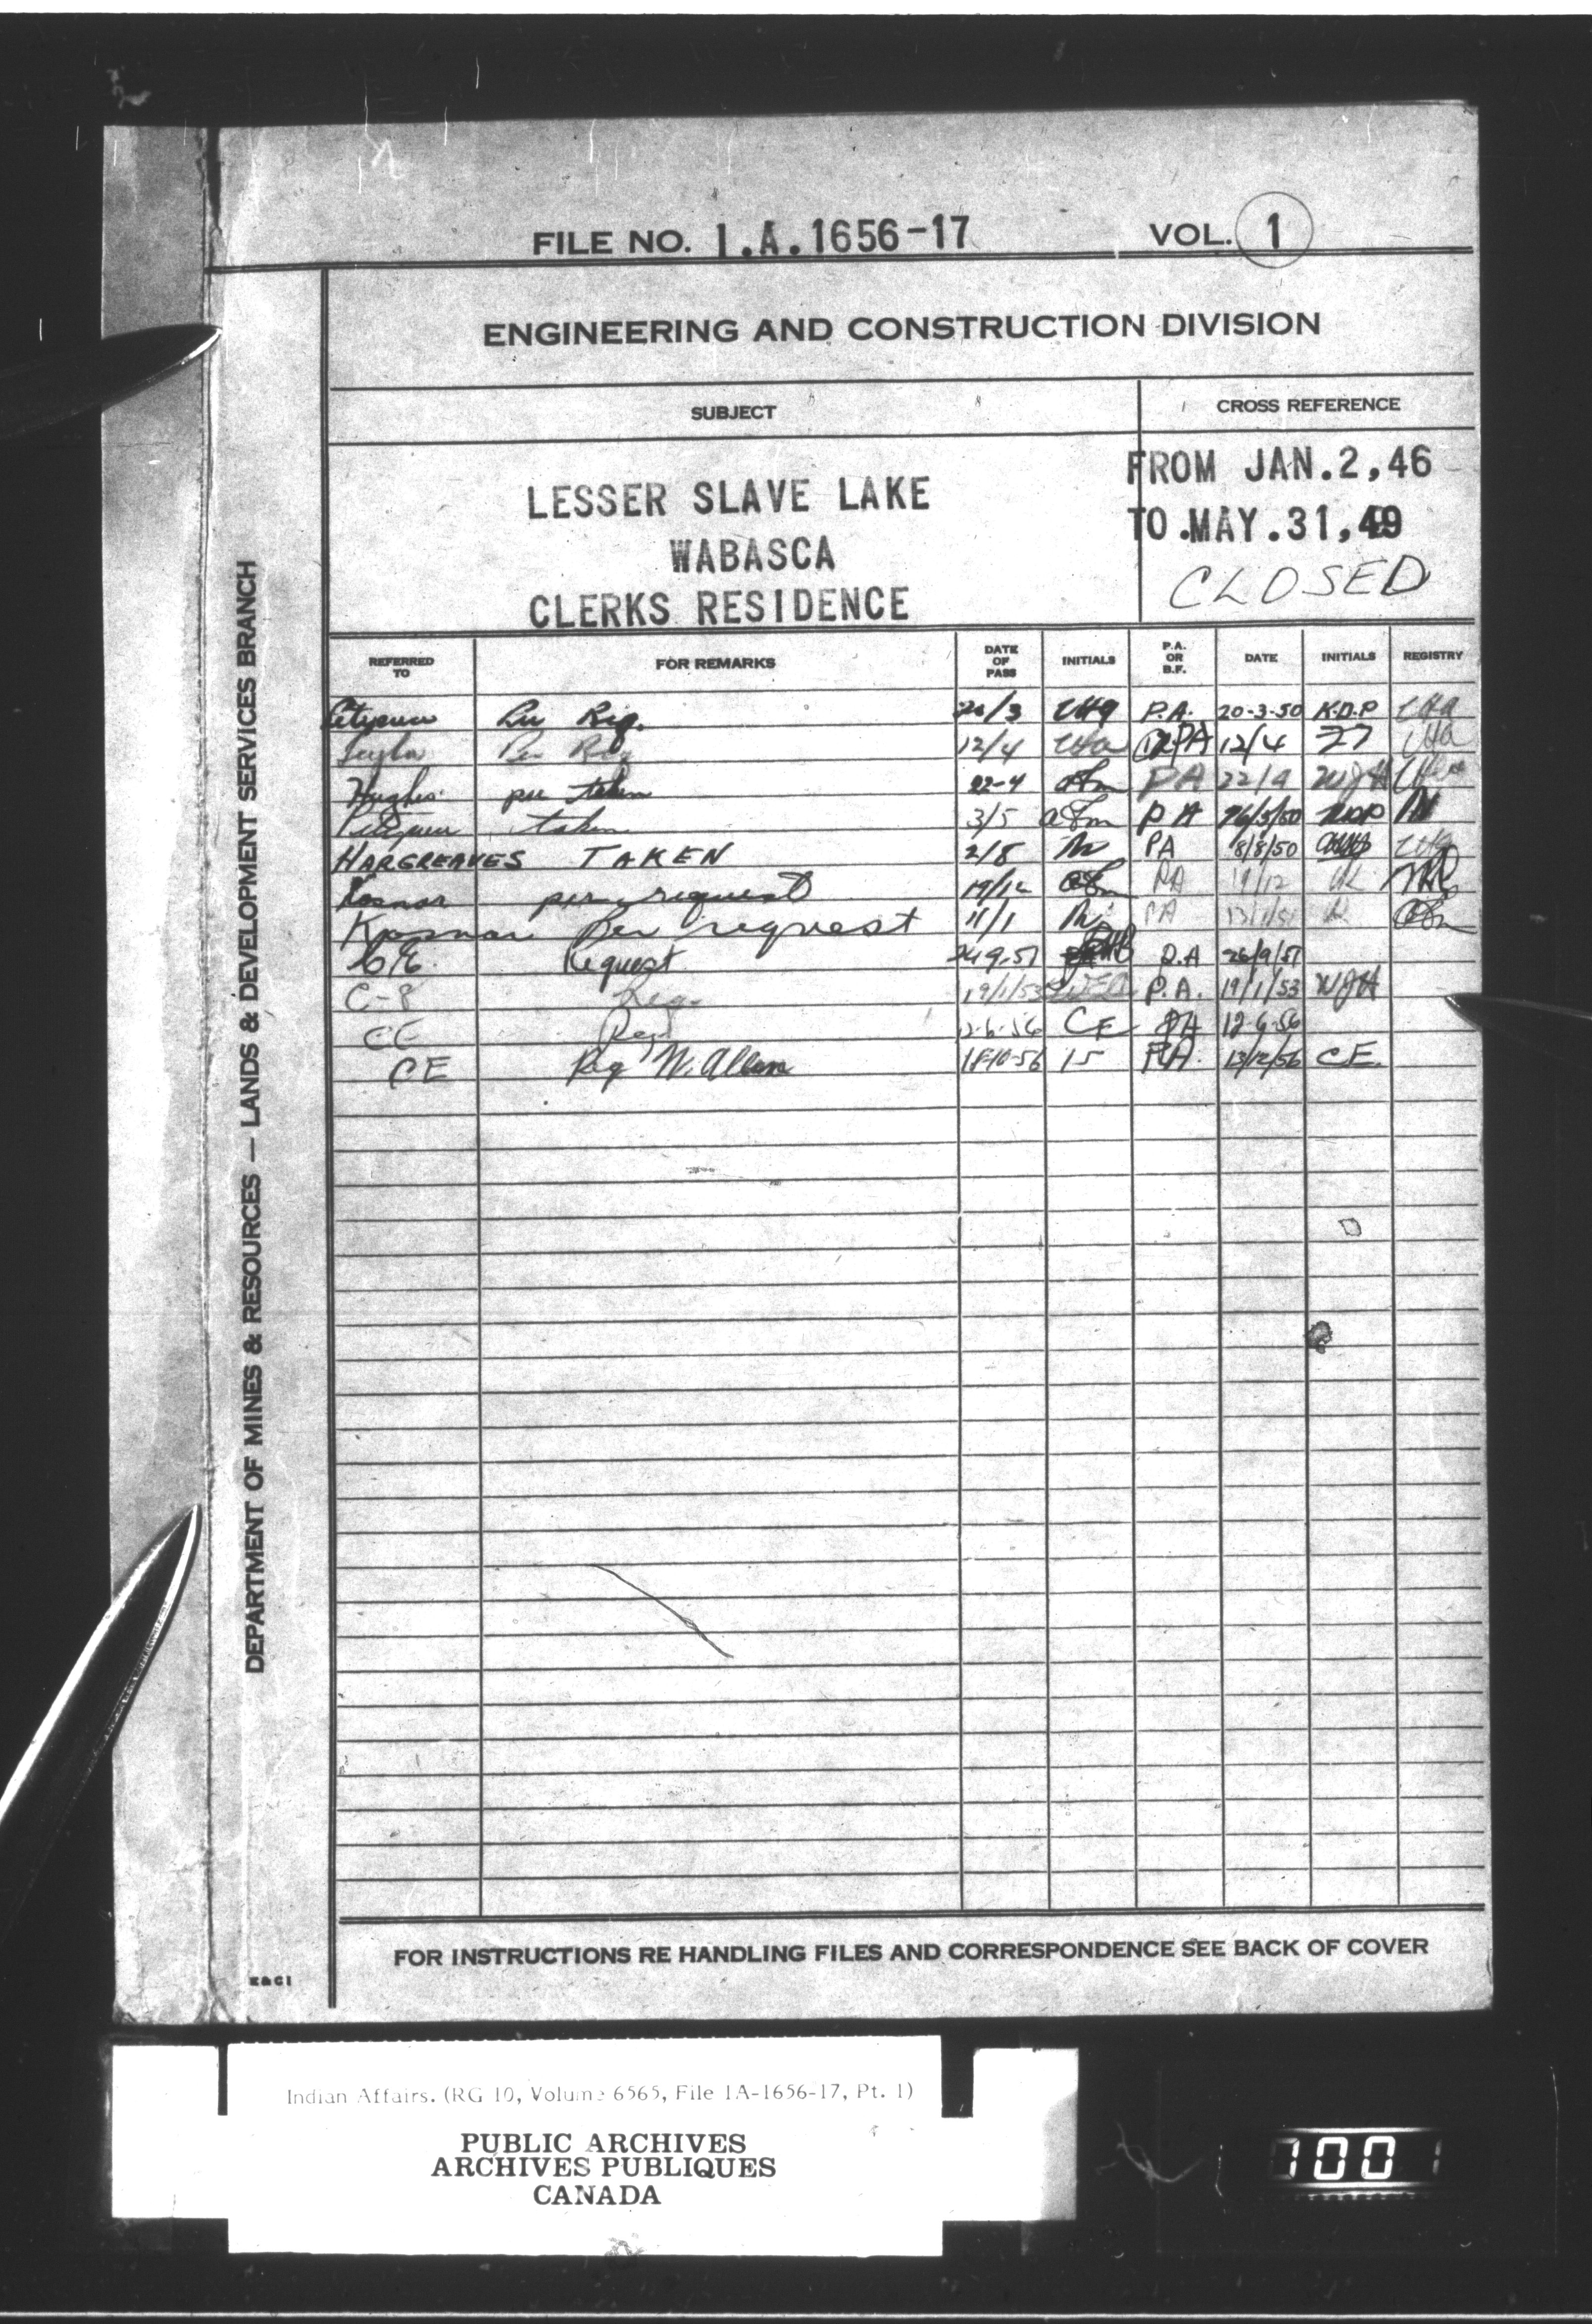 FILE NO. I.A.1656-17 VOL. 1
ENGINEERING AND CONSTRUCTION DIVISION
SUBJECT CROSS REFERENCE
LESSER SLAVE LAKE
WABASCA
CLERKS RESIDENCE
FROM JAN.2,46
TO.MAY.31,49
CLOSED
REFERRED TO FOR REMARKS DATE OF PASS INITIALS P.A. OR B.F. DATE INITIALS REGISTRY
Req. 20/3 P.A. 20-3-50 K.D.P
Per Req 12/4 PA 12/4
Hughes per taken 22-4 PA 22/4 WJH
taken 3/5 PA
HARGREAVES TAKEN 2/8 PA 8/8/50
Kosnar per request 19/12 PA 19/12
Kosnar Per request 11/1 PA
Request 24-9-51 P.A 26/9/51
C-8 Req. 19/1/53 P.A. 19/1/53 WJH
CE Req 12-6-56 CE PA 12-6-56
CE Req W. Allen 18-10-56 15 P.A. 13/12/56 C.E.
DEPARTMENT OF MINES & RESOURCES — LANDS & DEVELOPMENT SERVICES BRANCH
E & C 1
FOR INSTRUCTIONS RE HANDLING FILES AND CORRESPONDENCE SEE BACK OF COVER
Indian Affairs. (RG 10, Volume 6565, File 1A-1656-17, Pt. 1)
PUBLIC ARCHIVES
ARCHIVES PUBLIQUES
CANADA
1001